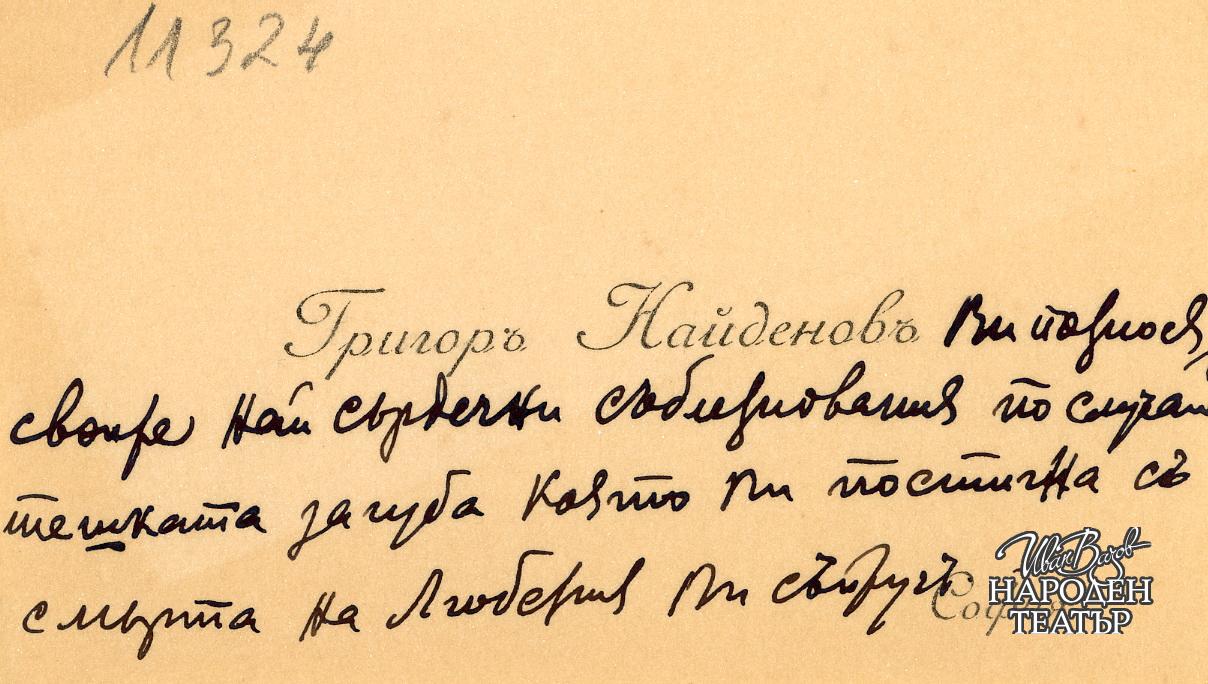 11324
Григоръ Найденовъ Ви поднося
своите най сърдечни съболезнования по случай
тешката загуба която Ви постигна съ
смъртта на Любезния Ви съпругъ
София
Иван Вазов
НАРОДЕН
ТЕАТЪР